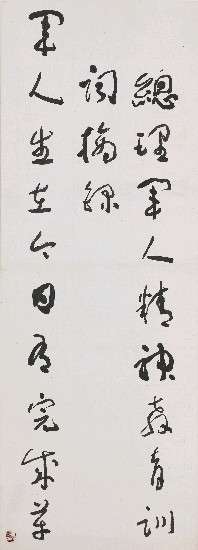 總理軍人精神教育訓
詞摘錄
軍人生在今日為完成革